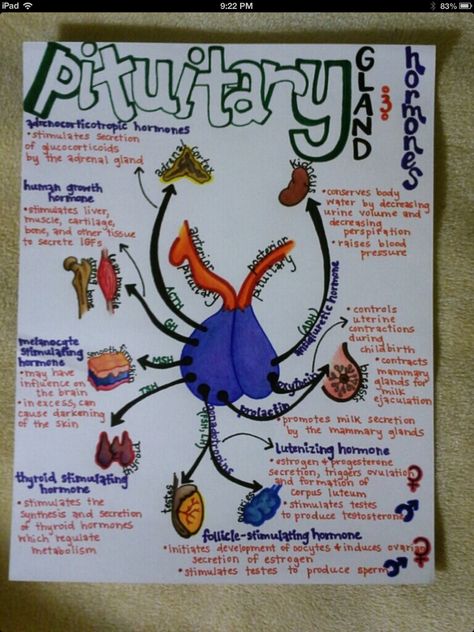 iPad
9:22 PM
83%
pituitary
GLAND
hormones
adrenocorticotropic hormones
• stimulates secretion
of glucocorticoids
by the adrenal gland
adrenal cortex
kidneys
• conserves body
water by decreasing
urine volume and
decreasing
perspiration
• raises blood
pressure
human growth
hormone
• stimulates liver,
muscle, cartilage,
bone, and other tissue
to secrete IGFs
strong bone
lean muscle
anterior
pituitary
posterior
pituitary
ACTH
GH
MSH
TSH
(ADH)
antidiuretic hormone
• controls
uterine
contractions
during
childbirth
• contracts
mammary
glands for
milk
ejaculation
oxytocin
prolactin
breasts
melanocate
stimulating
hormone
• may have
influence on
the brain
• in excess, can
cause darkening
of the skin
• promotes milk secretion
by the mammary glands
gonadotropins
(FSH, LH)
thyroid
testes
ovaries
lutenizing hormone
• estrogen + progesterone
secretion, triggers ovulation
and formation of
corpus luteum
• stimulates testes
to produce testosterone
thyroid stimulating
hormone
• stimulates the
synthesis and secretion
of thyroid hormones
which regulate
metabolism
follicle-stimulating hormone
• initiates development of oocytes + induces ovarian
secretion of estrogen
• stimulates testes to produce sperm